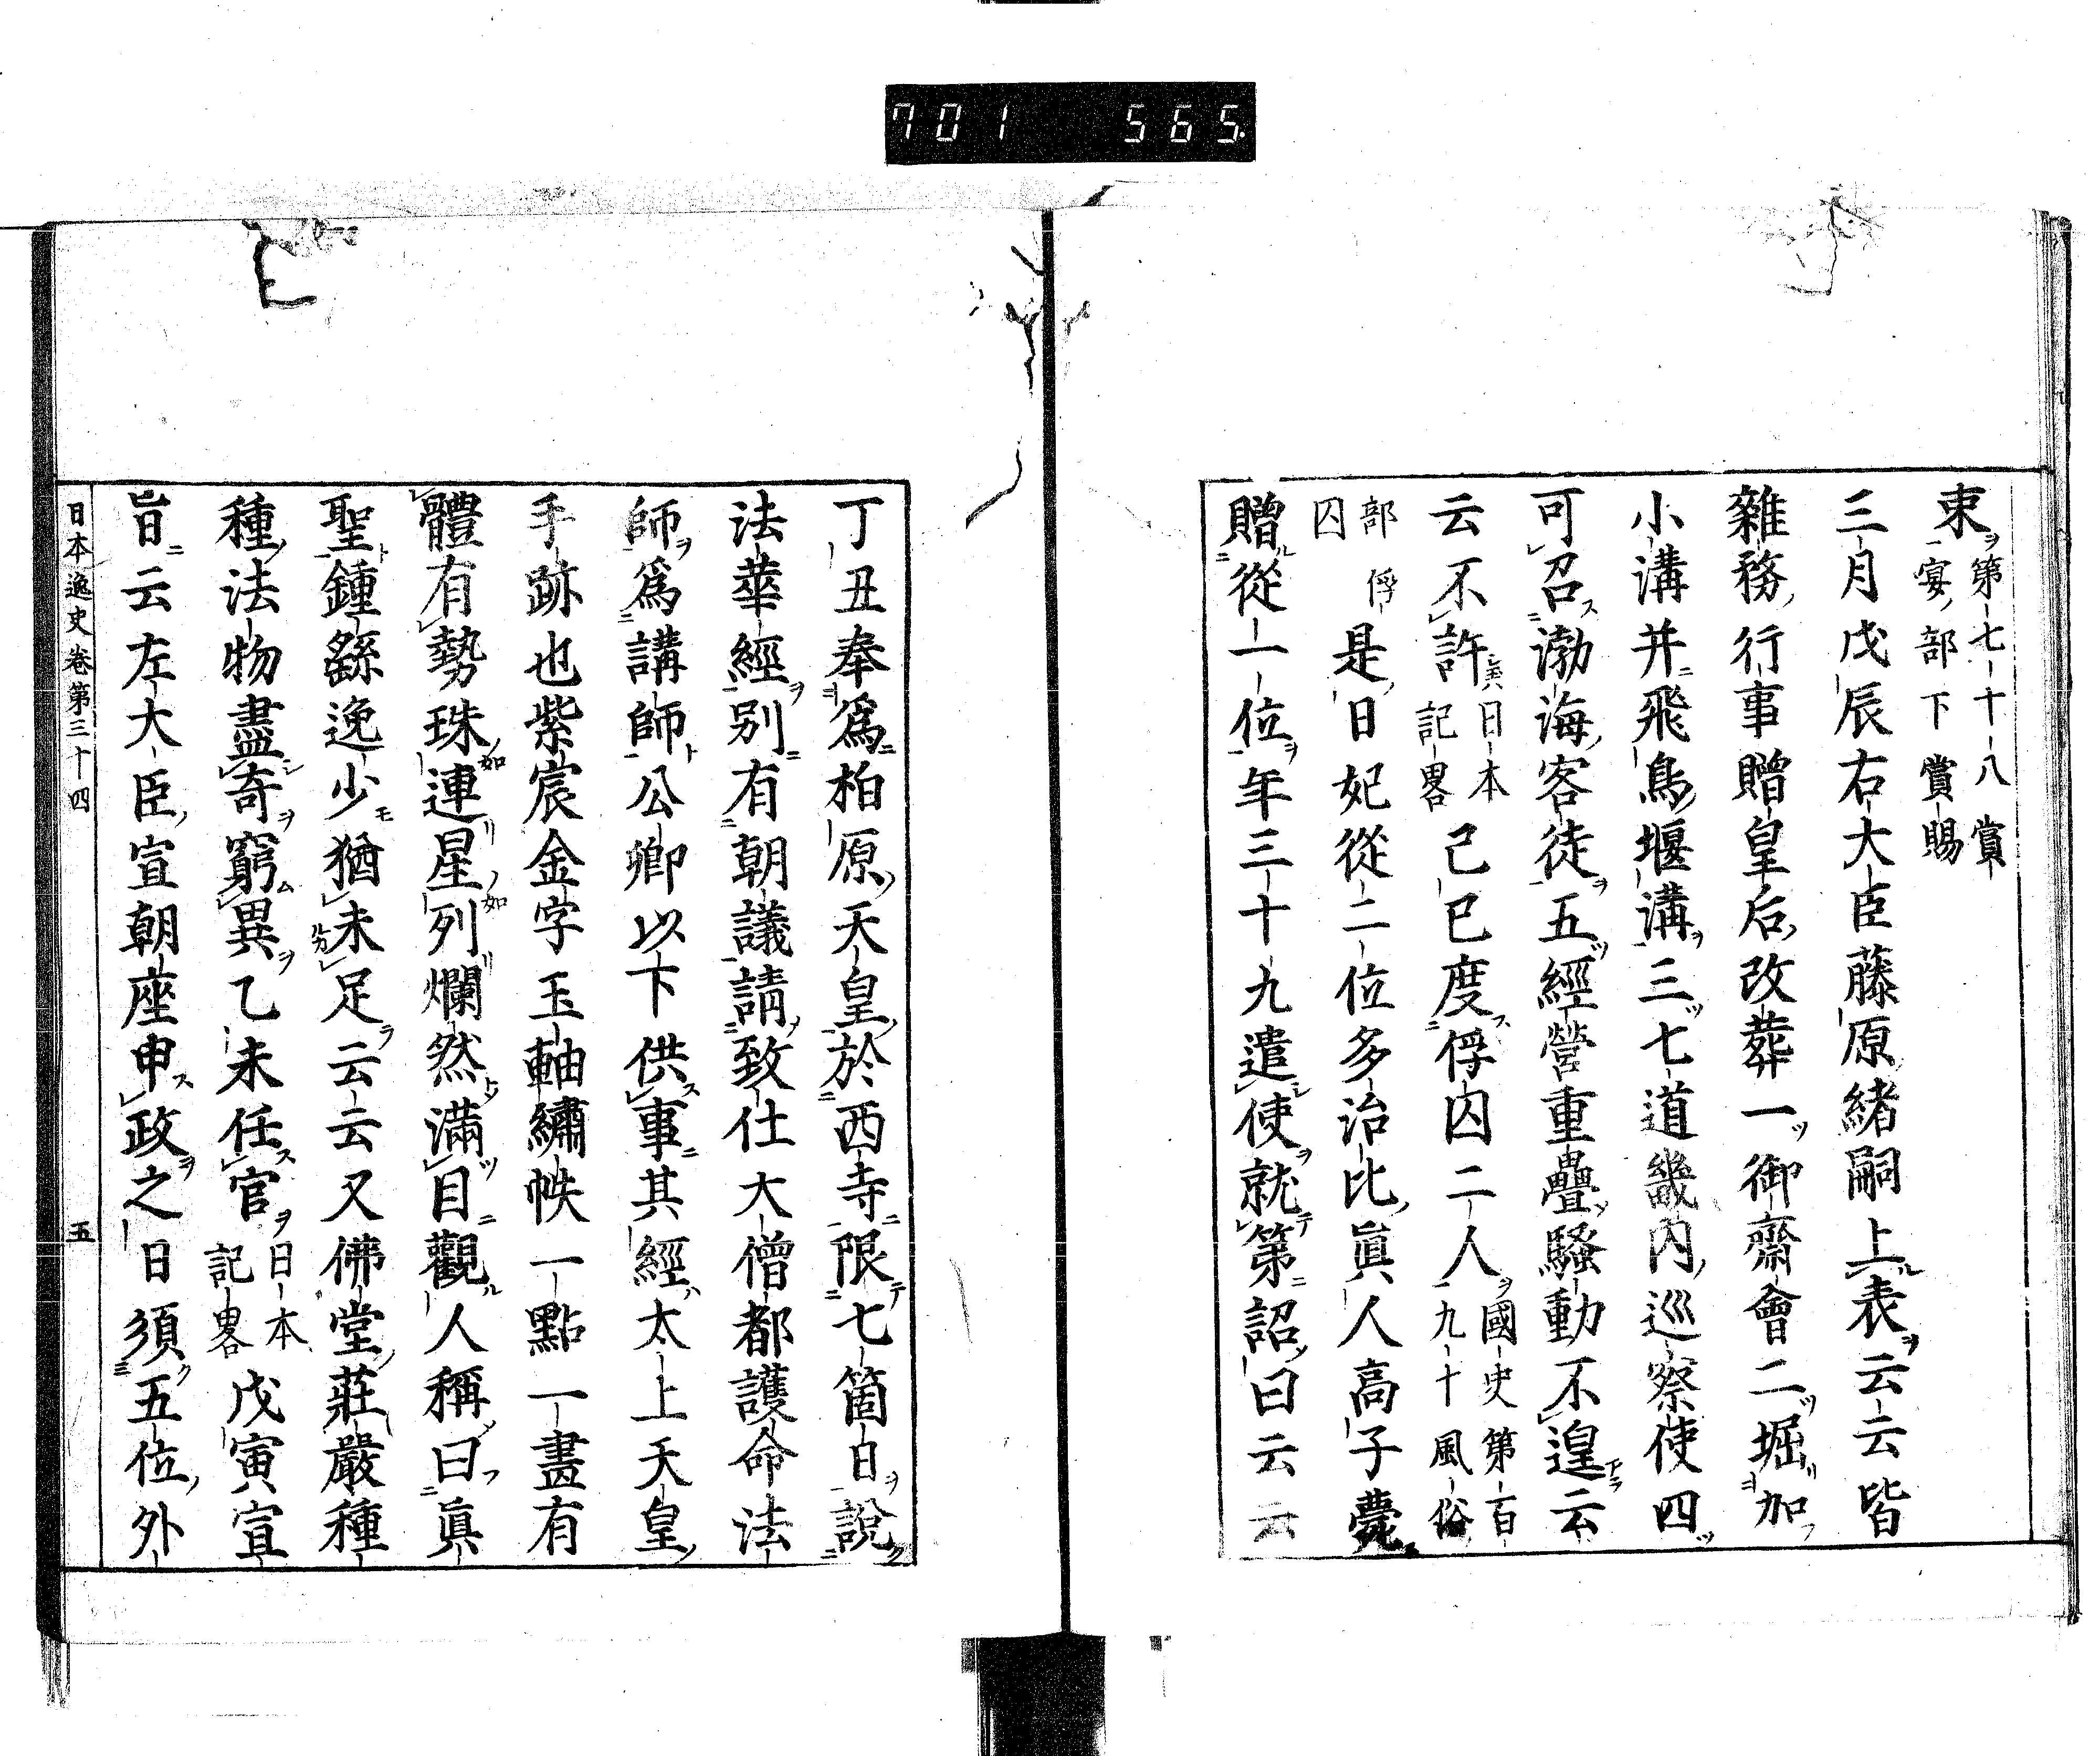 701 565
束第七十八賞宴部下賞賜
三月戊辰右大臣藤原緒嗣上表云云皆
雜務行事贈皇后改葬一御齋會二堀加
小溝并飛鳥堰溝三七道畿内巡察使四
可召渤海客徒五經營重疊騷動不遑云
云不許異日本記畧己巳度俘囚二人國史第一百九十風俗
部俘囚是日妃從二位多治比眞人高子薨
贈從一位年三十九遣使就第詔曰云云
丁丑奉爲柏原天皇於西寺限七箇日說
法華經別有朝議請致仕大僧都護命法
師爲講師公卿以下供事其經太上天皇
手跡也紫宸金字玉軸繡帙一點一畫有
體有勢珠連星列爛然滿目觀人稱曰眞
聖鍾繇逸少猶未足云云又佛堂莊嚴種
種法物盡奇窮異乙未任官日本記畧戊寅宣
旨云左大臣宣朝座申政之日須五位外
日本逸史卷第三十四 五